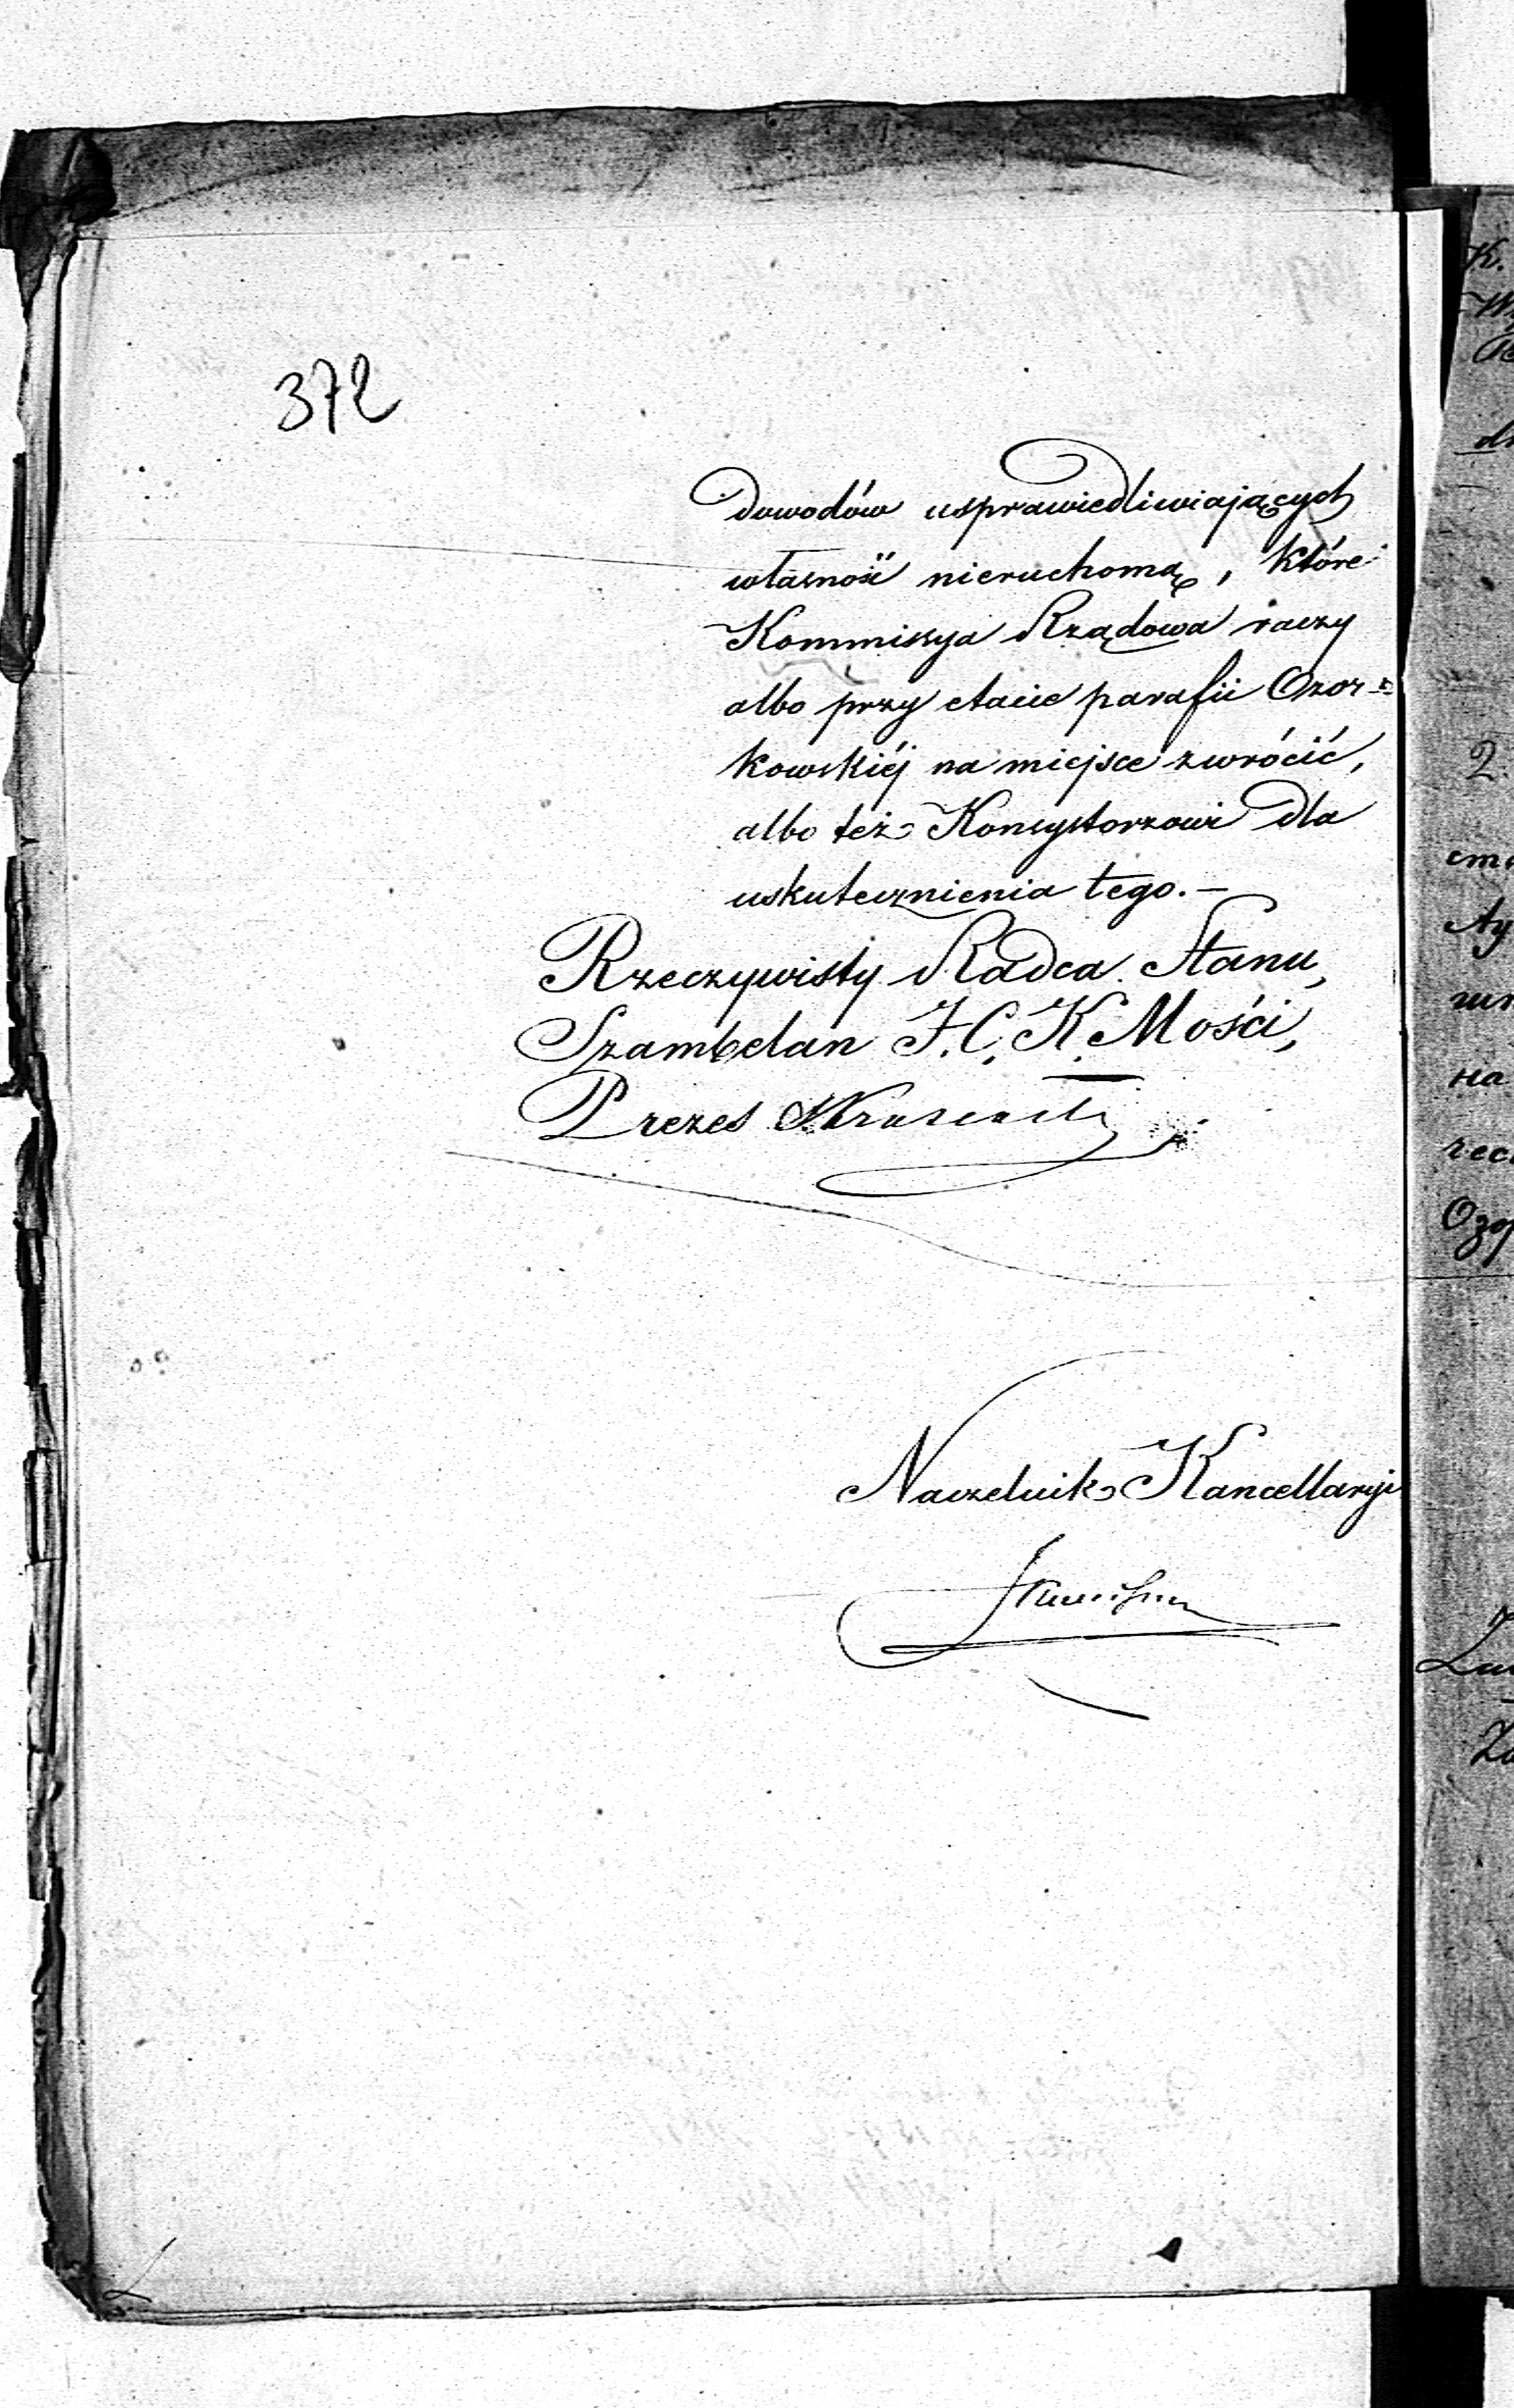 372
dowodów usprawiedliwiających
własność nieruchomą, które
Kommissya Rządowa raczy
albo przy etacie parafii Ozor=
kowskiéj na miejsce zwrócić,
albo też Konsystorzowi dla
uskutecznienia tego.—
Rzeczywisty Radca Stanu,
Szambelan J. C. K. Mości,
Prezes
Naczelnik Kancellaryi